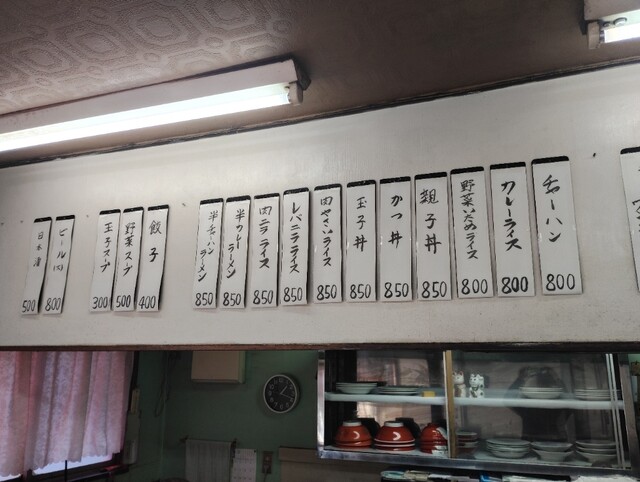 チャーハン 800
カレーライス 800
野菜いためライス 800
親子丼 850
かつ丼 850
玉子丼 850
肉やさいライス 850
レバニラライス 850
肉ニラライス 850
半カレーラーメン 850
半チャーハンラーメン 850
餃子 400
野菜スープ 500
玉子スープ 300
ビール(大) 800
日本酒 500